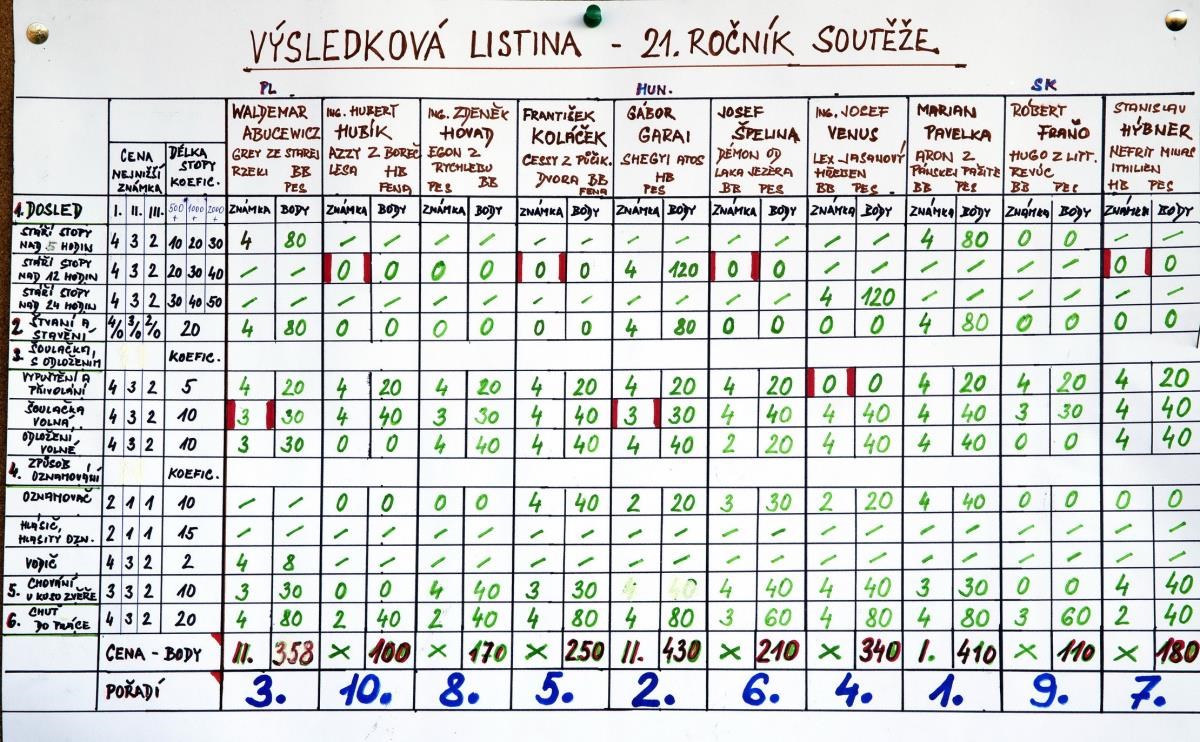 VÝSLEDKOVÁ LISTINA - 21. ROČNÍK SOUTĚŽE
PL HUN. SK
WALDEMAR ABUCEWICZ GREY ZE STAREJ RZEKI BB PES
ING. HUBERT HUBÍK AZZY Z BOREČ LESA HB FENA
ING. ZDENĚK HOVAD EGON Z RYCHLEBU PES BB
FRANTIŠEK KOLÁČEK CESSY Z PŮČIK. DVORA BB FENA
GÁBOR GARAI SHEGYI ATOS HB PES
JOSEF ŠPELINA DÉMON OD LAKA JEZERA BB PES
ING. JOSEF VENUS LEX-JASANOVÝ HŘEBEN BB PES
MARIAN PAVELKA ARON Z PÁNSKEJ PAŽITE BB PES
RÓBERT FRAŇO HUGO Z LITT. REVÚC BB PES
STANISLAV HÝBNER NEFRIT MINAS ITHILIEN HB PES
CENA NEJNIŽŠÍ ZNÁMKA DÉLKA STOPY KOEFIC.
1. DOSLED I. II. III. 500+ 1000+ 2000+ ZNÁMKA BODY ZNÁMKA BODY ZNÁMKA BODY ZNÁMKA BODY ZNÁMKA BODY ZNÁMKA BODY ZNÁMKA BODY ZNÁMKA BODY ZNÁMKA BODY ZNÁMKA BODY
STÁŘÍ STOPY NAD 5 HODIN 4 3 2 10 20 30 4 80 / / / / / / / / / / / / 4 80 0 0 / /
STÁŘÍ STOPY NAD 12 HODIN 4 3 2 20 30 40 / / 0 0 0 0 0 0 4 120 0 0 / / / / / / 0 0
STÁŘÍ STOPY NAD 24 HODIN 4 3 2 30 40 50 / / / / / / / / / / / / 4 120 / / / / / /
2. ŠTVANÍ A STAVĚNÍ 4/0 3/0 2/0 20 4 80 0 0 0 0 0 0 4 80 0 0 0 0 4 80 0 0 0 0
3. ŠOULAČKA, S ODLOŽENIM KOEFIC.
VYPUŠTĚNÍ A PŘIVOLÁNÍ 4 3 2 5 4 20 4 20 4 20 4 20 4 20 4 20 0 0 4 20 4 20 4 20
ŠOULAČKA VOLNÁ 4 3 2 10 3 30 4 40 3 30 4 40 3 30 4 40 4 40 4 40 3 30 4 40
ODLOŽENÍ VOLNÉ 4 3 2 10 3 30 0 0 4 40 4 40 4 40 2 20 4 40 4 40 0 0 4 40
4. ZPŮSOB OZNAMOVÁNÍ KOEFIC.
OZNAMOVAČ 2 1 1 10 / / 0 0 0 0 4 40 2 20 3 30 2 20 4 40 0 0 0 0
HLÁSIČ, HLASITÝ OZN. 2 1 1 15 / / / / / / / / / / / / / / / / / / / /
VODIČ 4 3 2 2 4 8 / / / / / / / / / / / / / / / / / /
5. CHOVÁNÍ U KUSU ZVĚŘE 3 3 2 10 3 30 0 0 4 40 3 30 4 40 4 40 4 40 3 30 0 0 4 40
6. CHUŤ DO PRÁCE 4 3 2 20 4 80 2 40 2 40 4 80 4 80 3 60 4 80 4 80 3 60 2 40
CENA - BODY II. 358 × 100 × 170 × 250 II. 430 × 210 × 340 I. 410 × 110 × 180
POŘADÍ 3. 10. 8. 5. 2. 6. 4. 1. 9. 7.